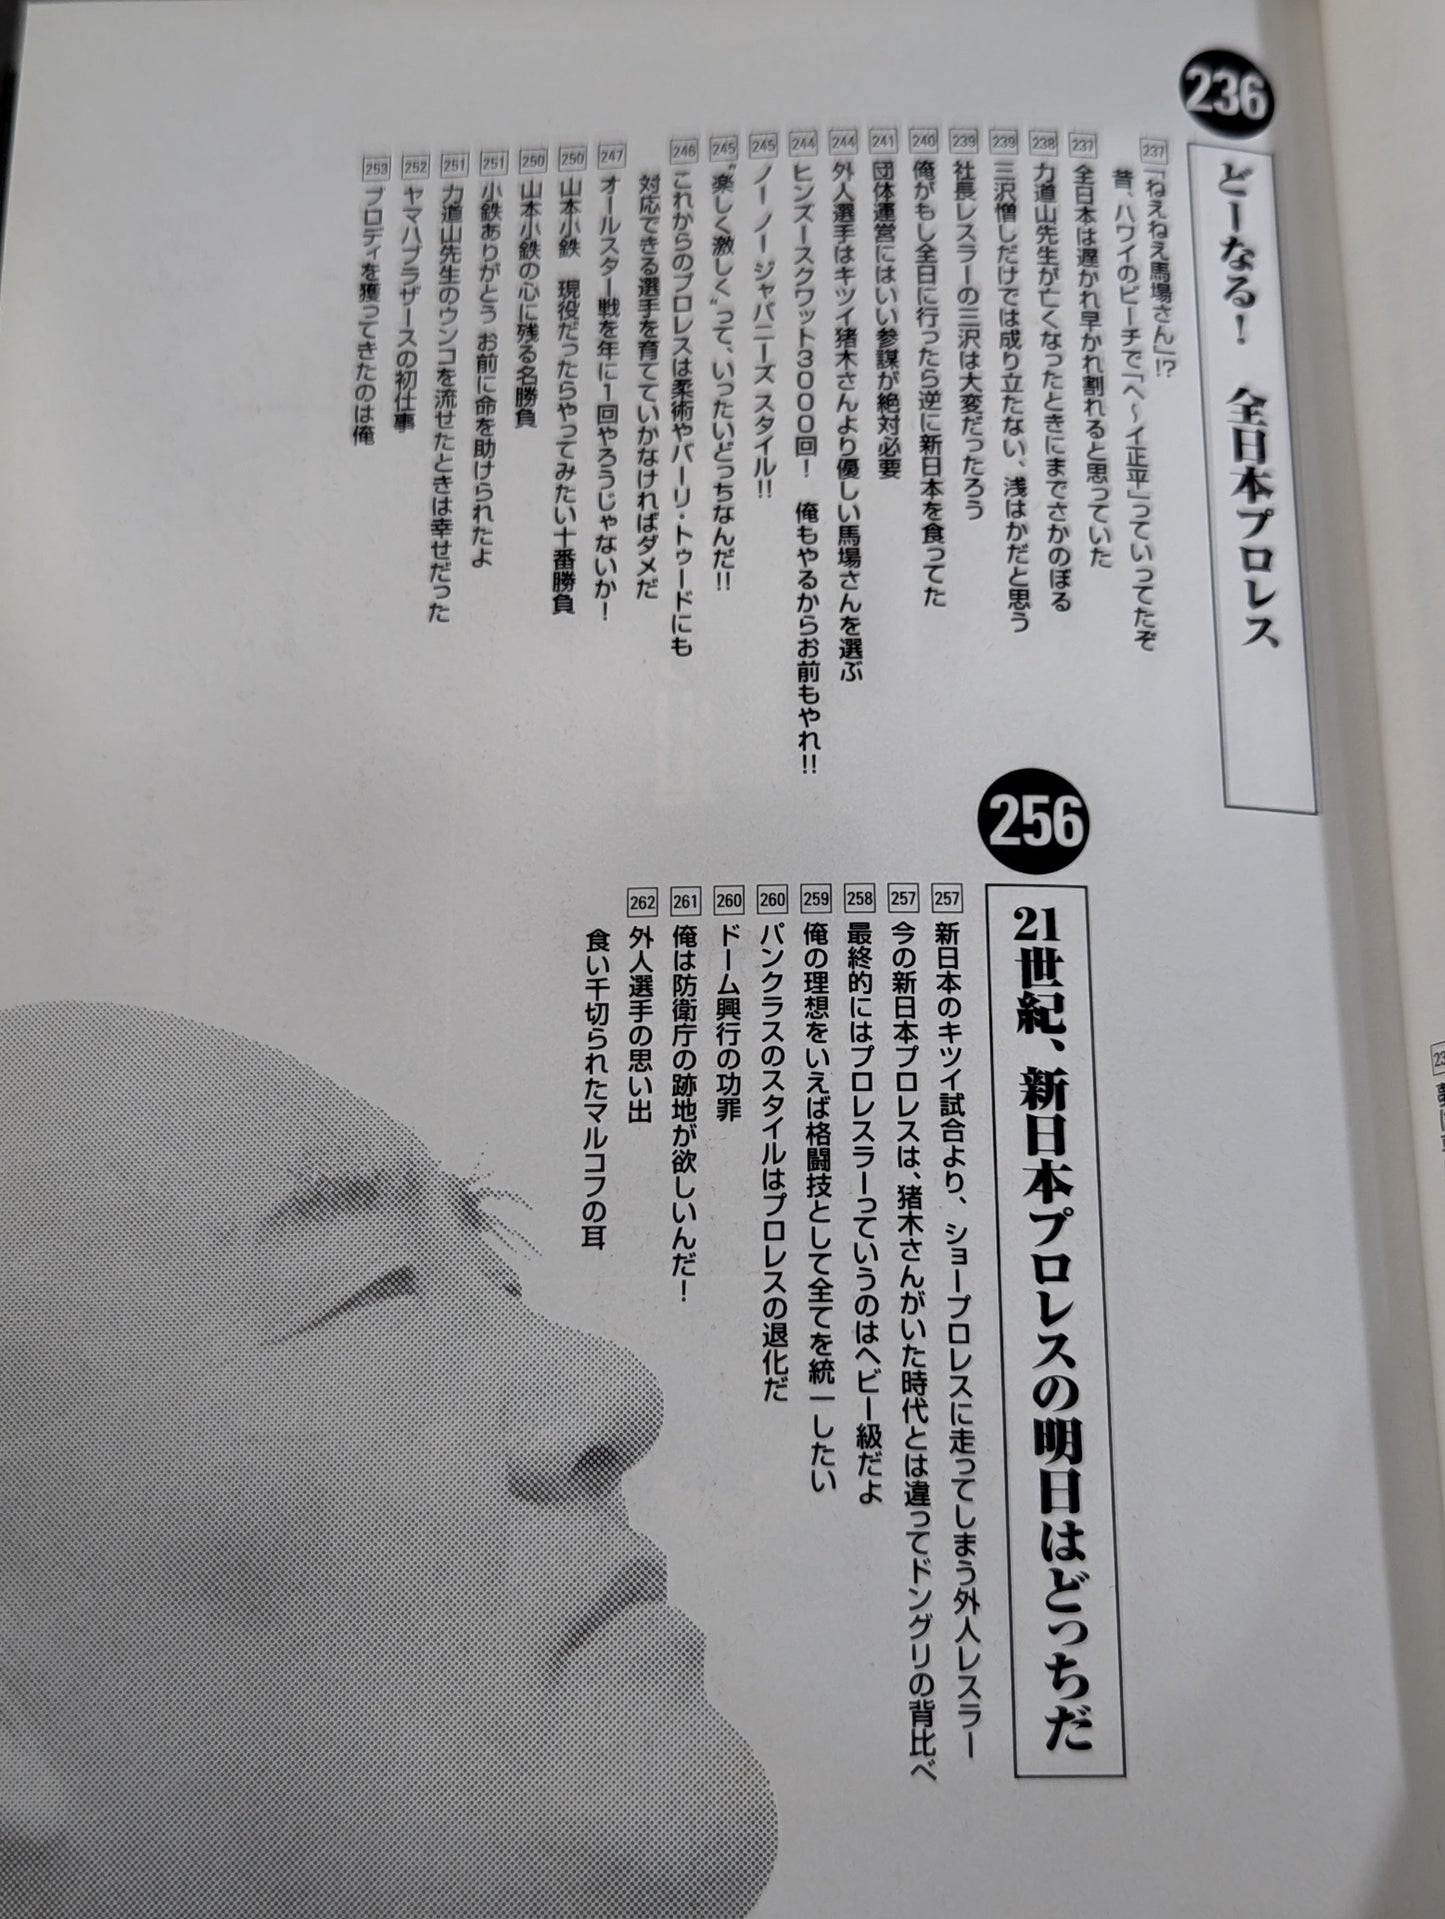 236
どーなる！　全日本プロレス
237
「ねえねえ馬場さん」!?
昔、ハワイのビーチで「へ〜イ正平」っていってたぞ
237
全日本は遅かれ早かれ割れると思っていた
238
力道山先生が亡くなったときにまでさかのぼる
239
三沢憎しだけでは成り立たない、浅はかだと思う
239
社長レスラーの三沢は大変だったろう
240
俺がもし全日に行ったら逆に新日本を食ってた
241
団体運営にはいい参謀が絶対必要
244
外人選手はキツイ猪木さんより優しい馬場さんを選ぶ
244
ヒンズースクワット3000回！　俺もやるからお前もやれ!!
245
ノー ノー ジャパニーズ スタイル!!
245
“楽しく激しく”って、いったいどっちなんだ!!
246
これからのプロレスは柔術やバーリ・トゥードにも
対応できる選手を育てていかなければダメだ
247
オールスター戦を年に1回やろうじゃないか！
250
山本小鉄　現役だったらやってみたい十番勝負
250
山本小鉄の心に残る名勝負
251
小鉄ありがとう　お前に命を助けられたよ
251
力道山先生のウンコを流せたときは幸せだった
252
ヤマハブラザースの初仕事
253
ブロディを獲ってきたのは俺
256
21世紀、新日本プロレスの明日はどっちだ
257
新日本のキツイ試合より、ショープロレスに走ってしまう外人レスラー
257
今の新日本プロレスは、猪木さんがいた時代とは違ってドングリの背比べ
258
最終的にはプロレスラーっていうのはヘビー級だよ
259
俺の理想をいえば格闘技として全てを統一したい
260
パンクラスのスタイルはプロレスの退化だ
260
ドーム興行の功罪
261
俺は防衛庁の跡地が欲しいんだ！
262
外人選手の思い出
食い千切られたマルコフの耳